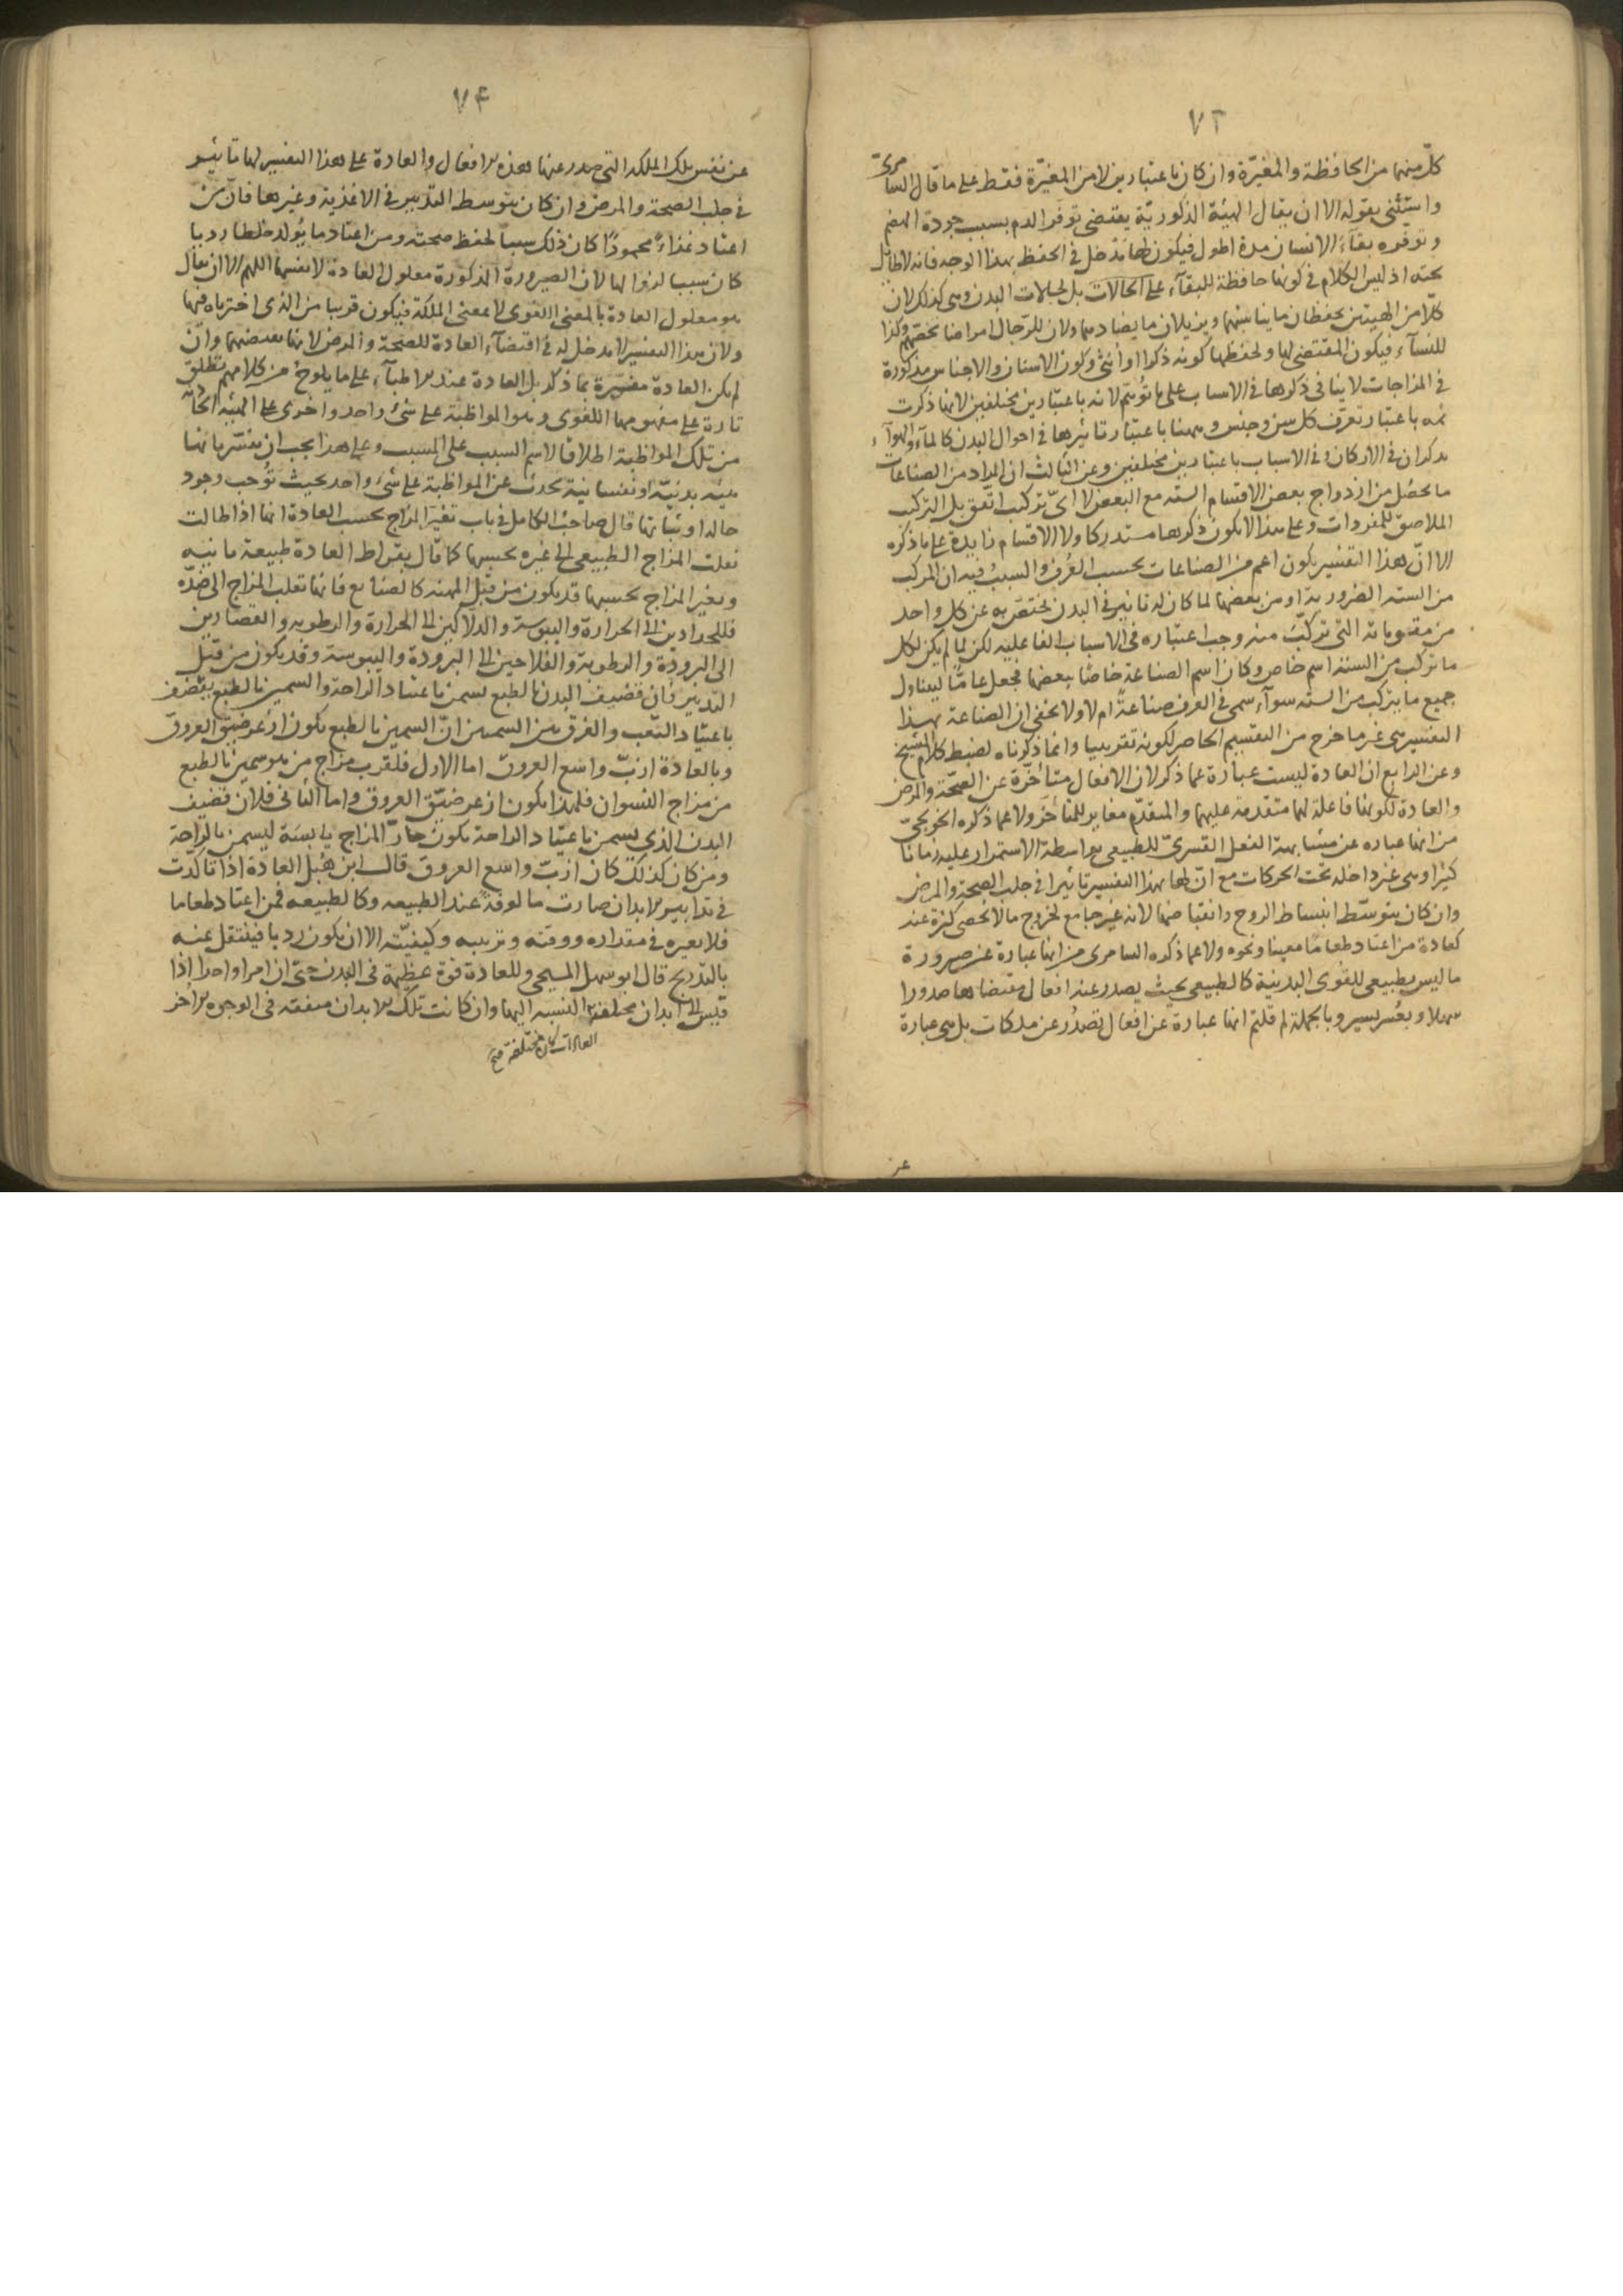 ٧٣
كلّ منهما من الحافظة والمغيّرة وان كان باعتبارين لا من المغيّرة فقط على ما قال السامرىّ
واستثنى بقوله الا ان يقال الهيئة الذكوريّة يقتضى توفّر الدم بسبب جودة الهضم
وتوفره بقآء الانسان مدة اطول فيكون لها مدخل فى الحفظ بهذا الوجه فانه لا طائل
تحته اذ ليس الكلام فى كونها حافظة للبقآء على الحالات بل لحالات البدن وهى كذلك لان
كلّا من الهيئتين يحفظان ما يناسبهما ويزيلان ما يضادهما ولان للرّجال امراضا تخصّهم وكذا
للنسآء فيكون المقتضى لها ولحفظها كونه ذكرا او انثى وكون الاسنان والاجناس مذكورة
فى المزاجات لا ينافى ذكرها فى الاسباب على ما تُوهّم لانه باعتبارين مختلفين لانها ذكرت
ثمه باعتبار تعرّف كل سن وجنس وههنا باعتبار تاثيرها فى احوال البدن كالمآء والهوآء
يذكران فى الاركان وفى الاسباب باعتبارين مختلفين وعن الثالث ان المراد من الصناعات
ما يحصُل من ازدواج بعض الاقسام الستة مع البعض لا اىّ تركيب اتّفق بل التركيب
الملاصق للمفردات وعلى هذا لا يكون ذكرها مستدركا ولا الاقسام زايدة على ما ذكره
الا انّ هذا التفسير يكون اعم من الصناعات بحسب العُرف والسبب فيه ان المركب
من الستة الضرورية او من بعضها لما كان له تاثير فى البدن يختص به عن كل واحد
من مقوماته التى تركّبت منه وجب اعتباره فى الاسباب الفاعليه لكن لما لم يكن لكل
ما تركب من الستة اسم خاص وكان اسم الصناعة خاصّا ببعضها فجعل عامّا ليتناول
جميع ما يتركب من الستة سوآء سمى فى العرف صناعةً ام لا ولا يخفى ان الصناعة بهذا
التفسير هى غير ما خرج من التقسيم الحاصر لكونه تقريبيا وانما ذكرناه لضبط كلام الشيخ
وعن الرابع ان العادة ليست عبارة عما ذكر لان الافعال متأخّرة عن الصحّة والمرض
والعادة لكونها فاعلة لهما متقدمة عليهما والمتقدّم مغاير للمتأخّر ولا عما ذكره الخونجىّ
من انها عباره عن مشابهة الفعل القسرىّ للطبيعى بواسطة الاستمرار عليه زمانا
كثيرا وهى غير داخله تحت الحركات مع انّ لها بهذا التفسير تاثيرا فى جلب الصحة والمرض
وان كان بتوسّط انبساط الروح وانقباضها لانه غير جامع لخروج ما لا يُحصى كثرة عنه
كعادة من اعتاد طعامًا معينا ونحوه ولا عما ذكره السامرى من انها عبارة عن صيرورة
ما ليس بطبيعى للقوى البدنية كالطبيعى بحيث يصدر عنه افعال مقتضاها صدورا
سهلا وبعُسر يسير وبالجملة لم قلتم انها عبارة عن افعال تصدُر عن ملكات بل هى عبارة
عن
٧۴
عن نفس تلك الملكه التى صدر عنها هذه الافعال والعادة على هذا التفسير لها تاثير
فى جلب الصحة والمرض وان كان بتوسط التدبير فى الاغذية وغيرها فانّ من
اعتاد غذاءً محمودًا كان ذلك سببا لحفظ صحته ومن اعتاد ما يُولد خلطا رديا
كان سببا لزوالها لان الصيرورة المذكورة معلول العادة لا نفسها اللهم الا ان يقال
هو معلول العادة بالمعنى اللغوى لا بمعنى الملكة فيكون قريبا من الذى اخترناه فيها
ولان هذا التفسير لا مدخل له فى اقتضآء العادة للصحّة والمرض لانها تقتضيهما وان
لم يكن العادة مفسّرة بما ذكر بل العادة عند الاطبآء على ما يلوح من كلامهم تُطلق
تارة على مفهومها اللغوى وهو المواظبة على شئ واحد واخرى على الهيئة الحادثة
من تلك المواظبة اطلاقًا لاسم السبب على المسبب وعلى هذا يجب ان يفسّر بانها
هيئة بدنيّة او نفسانية تحدث عن المواظبة على شئ واحد بحيث تُوجب وجود
حالة او ثباتها قال صاحب الكامل فى باب تغيّر المزاج بحسب العادة انها اذا طالت
نقلت المزاج الطبيعى الى غيره بحسبها كما قال بقراط العادة طبيعة ثانيه
وتغير المزاج بحسبها قد يكون من قِبَل المهنه كالصنايع فانها تقلب المزاج الى ضدّه
فللحدادين الى الحرارة واليبوسة والدلّاكين الى الحرارة والرطوبه والقصّارين
الى البرودة والرطوبة والفلاحين الى البرودة واليبوسة وقد يكون من قبل
التدبير فان قضيف البدن بالطبع يسمن باعتياد الراحة والسمين بالطبع يقضف
باعتياد التعب والفرق بين السمينين انّ السمين بالطبع يكون ازعر ضيّق العروق
وبالعادة ازبّ واسع العروق اما الاول فلقرب مزاج من هو سمين بالطبع
من مزاج النسوان فلهذا يكون ازعر ضيّق العروق واما الثانى فلان قضيف
البدن الذى يسمن باعتياد الراحة يكون حارّ المزاج يابسَه ليسمن بالراحة
ومن كان كذلك كان ازبّ واسع العروق قال ابن هُبل العادة اذا تأكّدت
فى تدابير الابدان صارت مالوفةً عند الطبيعه وكالطبيعه فمن اعتاد طعاما
فلا يغيره فى مقداره ووقته وترتيبه وكيفيّته الا ان يكون رديا فينتقل عنه
بالتدريج قال ابو سهل المسيحى وللعادة قوة عظيمة فى البدن حتى ان امرا واحدا اذا
قيس الى ابدان مختلفة العادات كان مختلفة بالنسبه اليها وان كانت تلك الابدان متفقه فى الوجوه الاُخر